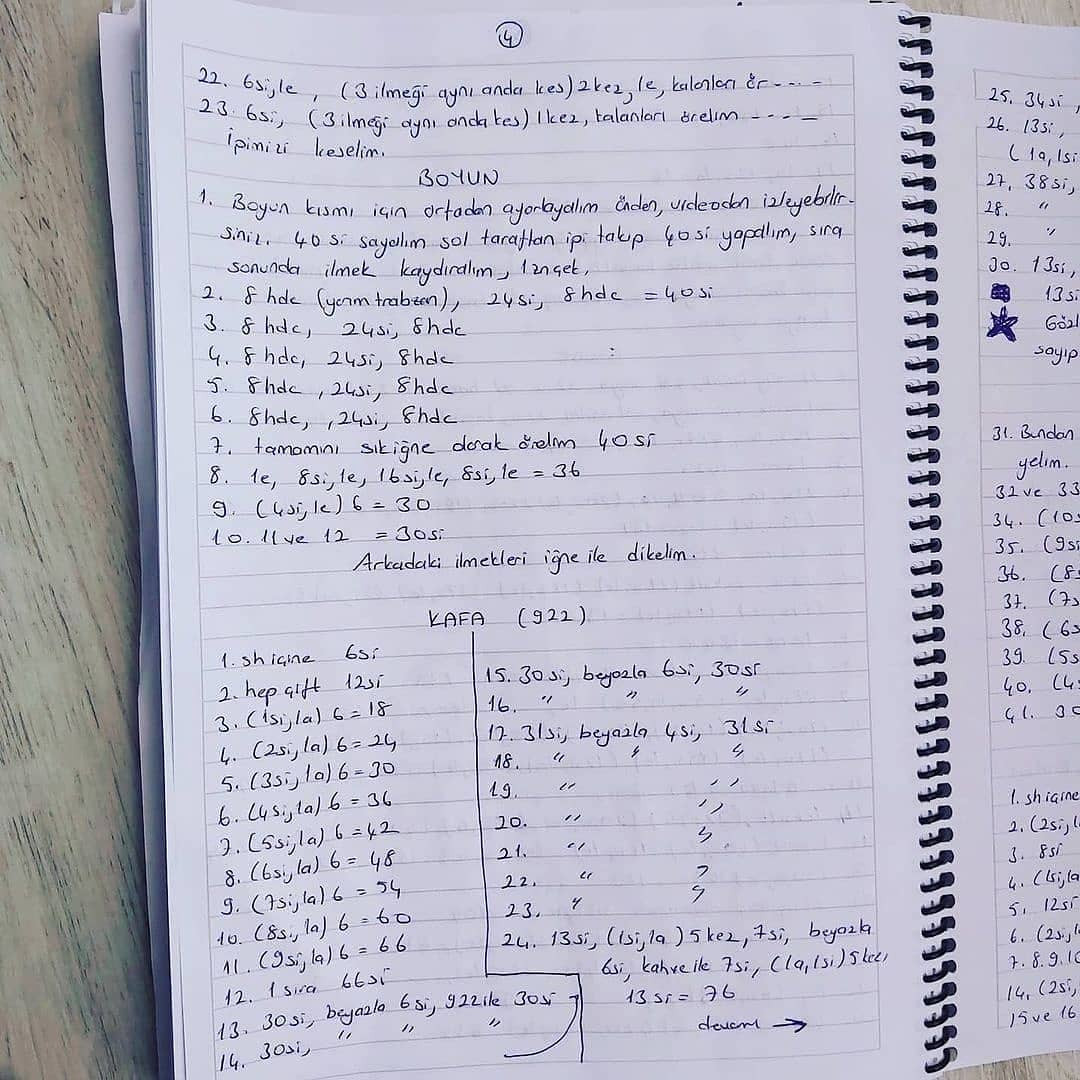 4
22. 6si,1e, (3 ilmeği aynı anda kes) 2kez, 1e, kalanları ör----
23. 6si, (3 ilmeği aynı anda kes) 1kez, kalanları örelim ----
İpimizi keselim.
BOYUN
1. Boyun kısmı için ortadan ayarlayalım önden, videodan izleyebilir-
siniz. 40 si sayalım sol taraftan ipi takıp 40si yapalım, sıra
sonunda ilmek kaydıralım, 1zn çek.
2. 8 hdc (yarım trabzan), 24si, 8hdc = 40si
3. 8 hdc, 24si, 8hdc
4. 8 hdc, 24si, 8hdc
5. 8hdc, 24si, 8hdc
6. 8hdc, ,24si, 8hdc
7. tamamını sık iğne olarak örelim 40si
8. 1e, 8si,1e, 16si,1e, 8si,1e = 36
9. (4si,1e) 6 = 30
10. 11 ve 12 = 30si
Arkadaki ilmekleri iğne ile dikelim.
KAFA (922)
1. sh içine 6si
2. hep çift 12si
3. (1si,1a) 6 = 18
4. (2si,1a) 6 = 24
5. (3si,1a) 6 = 30
6. (4si,1a) 6 = 36
7. (5si,1a) 6 = 42
8. (6si,1a) 6 = 48
9. (7si,1a) 6 = 54
10. (8si,1a) 6 = 60
11. (9si,1a) 6 = 66
12. 1 sıra 66si
13. 30si, beyazla 6si, 922 ile 30si
14. 30si, " " "
15. 30si, beyazla 6si, 30si
16. " " "
17. 31si, beyazla 4si, 31si
18. " " "
19. " "
20. " "
21. " "
22. " "
23. " "
24. 13si, (1si,1a) 5 kez, 7si, beyazla
6si, kahve ile 7si, (1a,1si) 5 kez,
13 si = 76
devam →
25. 34si
26. 13si,
(1a,1si
27. 38si,
28. "
29. "
30. 13si,
13si
Gözl
sayıp
31. Bundan
yelim.
32 ve 33
34. (10s
35. (9si
36. (8s
37. (7s
38. (6s
39. (5s
40. (4s
41. 30
1. sh içine
2. (2si,1
3. 8si
4. (1si,1a
5. 12si
6. (2si,1
7. 8. 9. 10
14. (2si,
15 ve 16